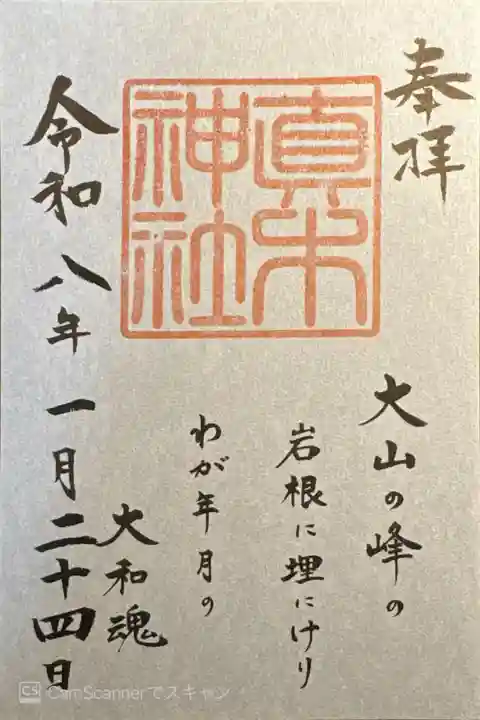 奉拝
真木神社
大山の峰の
岩根に埋にけり
わが年月の
大和魂
令和八年一月二十四日
CS CamScannerでスキャン